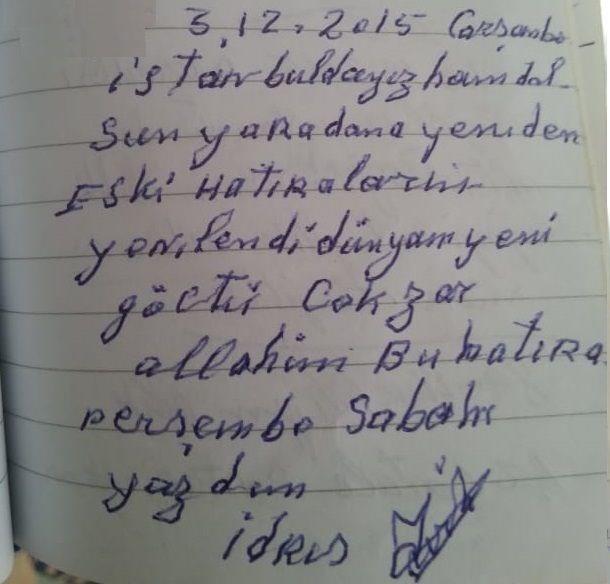 3.12.2015 Carşamba
iştanbuldayız hamdol
Sun yaradana yenıden
Eski Hatıralarım
yenılendi dünyam yeni
göctü Cok zor
allahım Bu hatıra
perşembe Sabahı
yazdım
idrıs